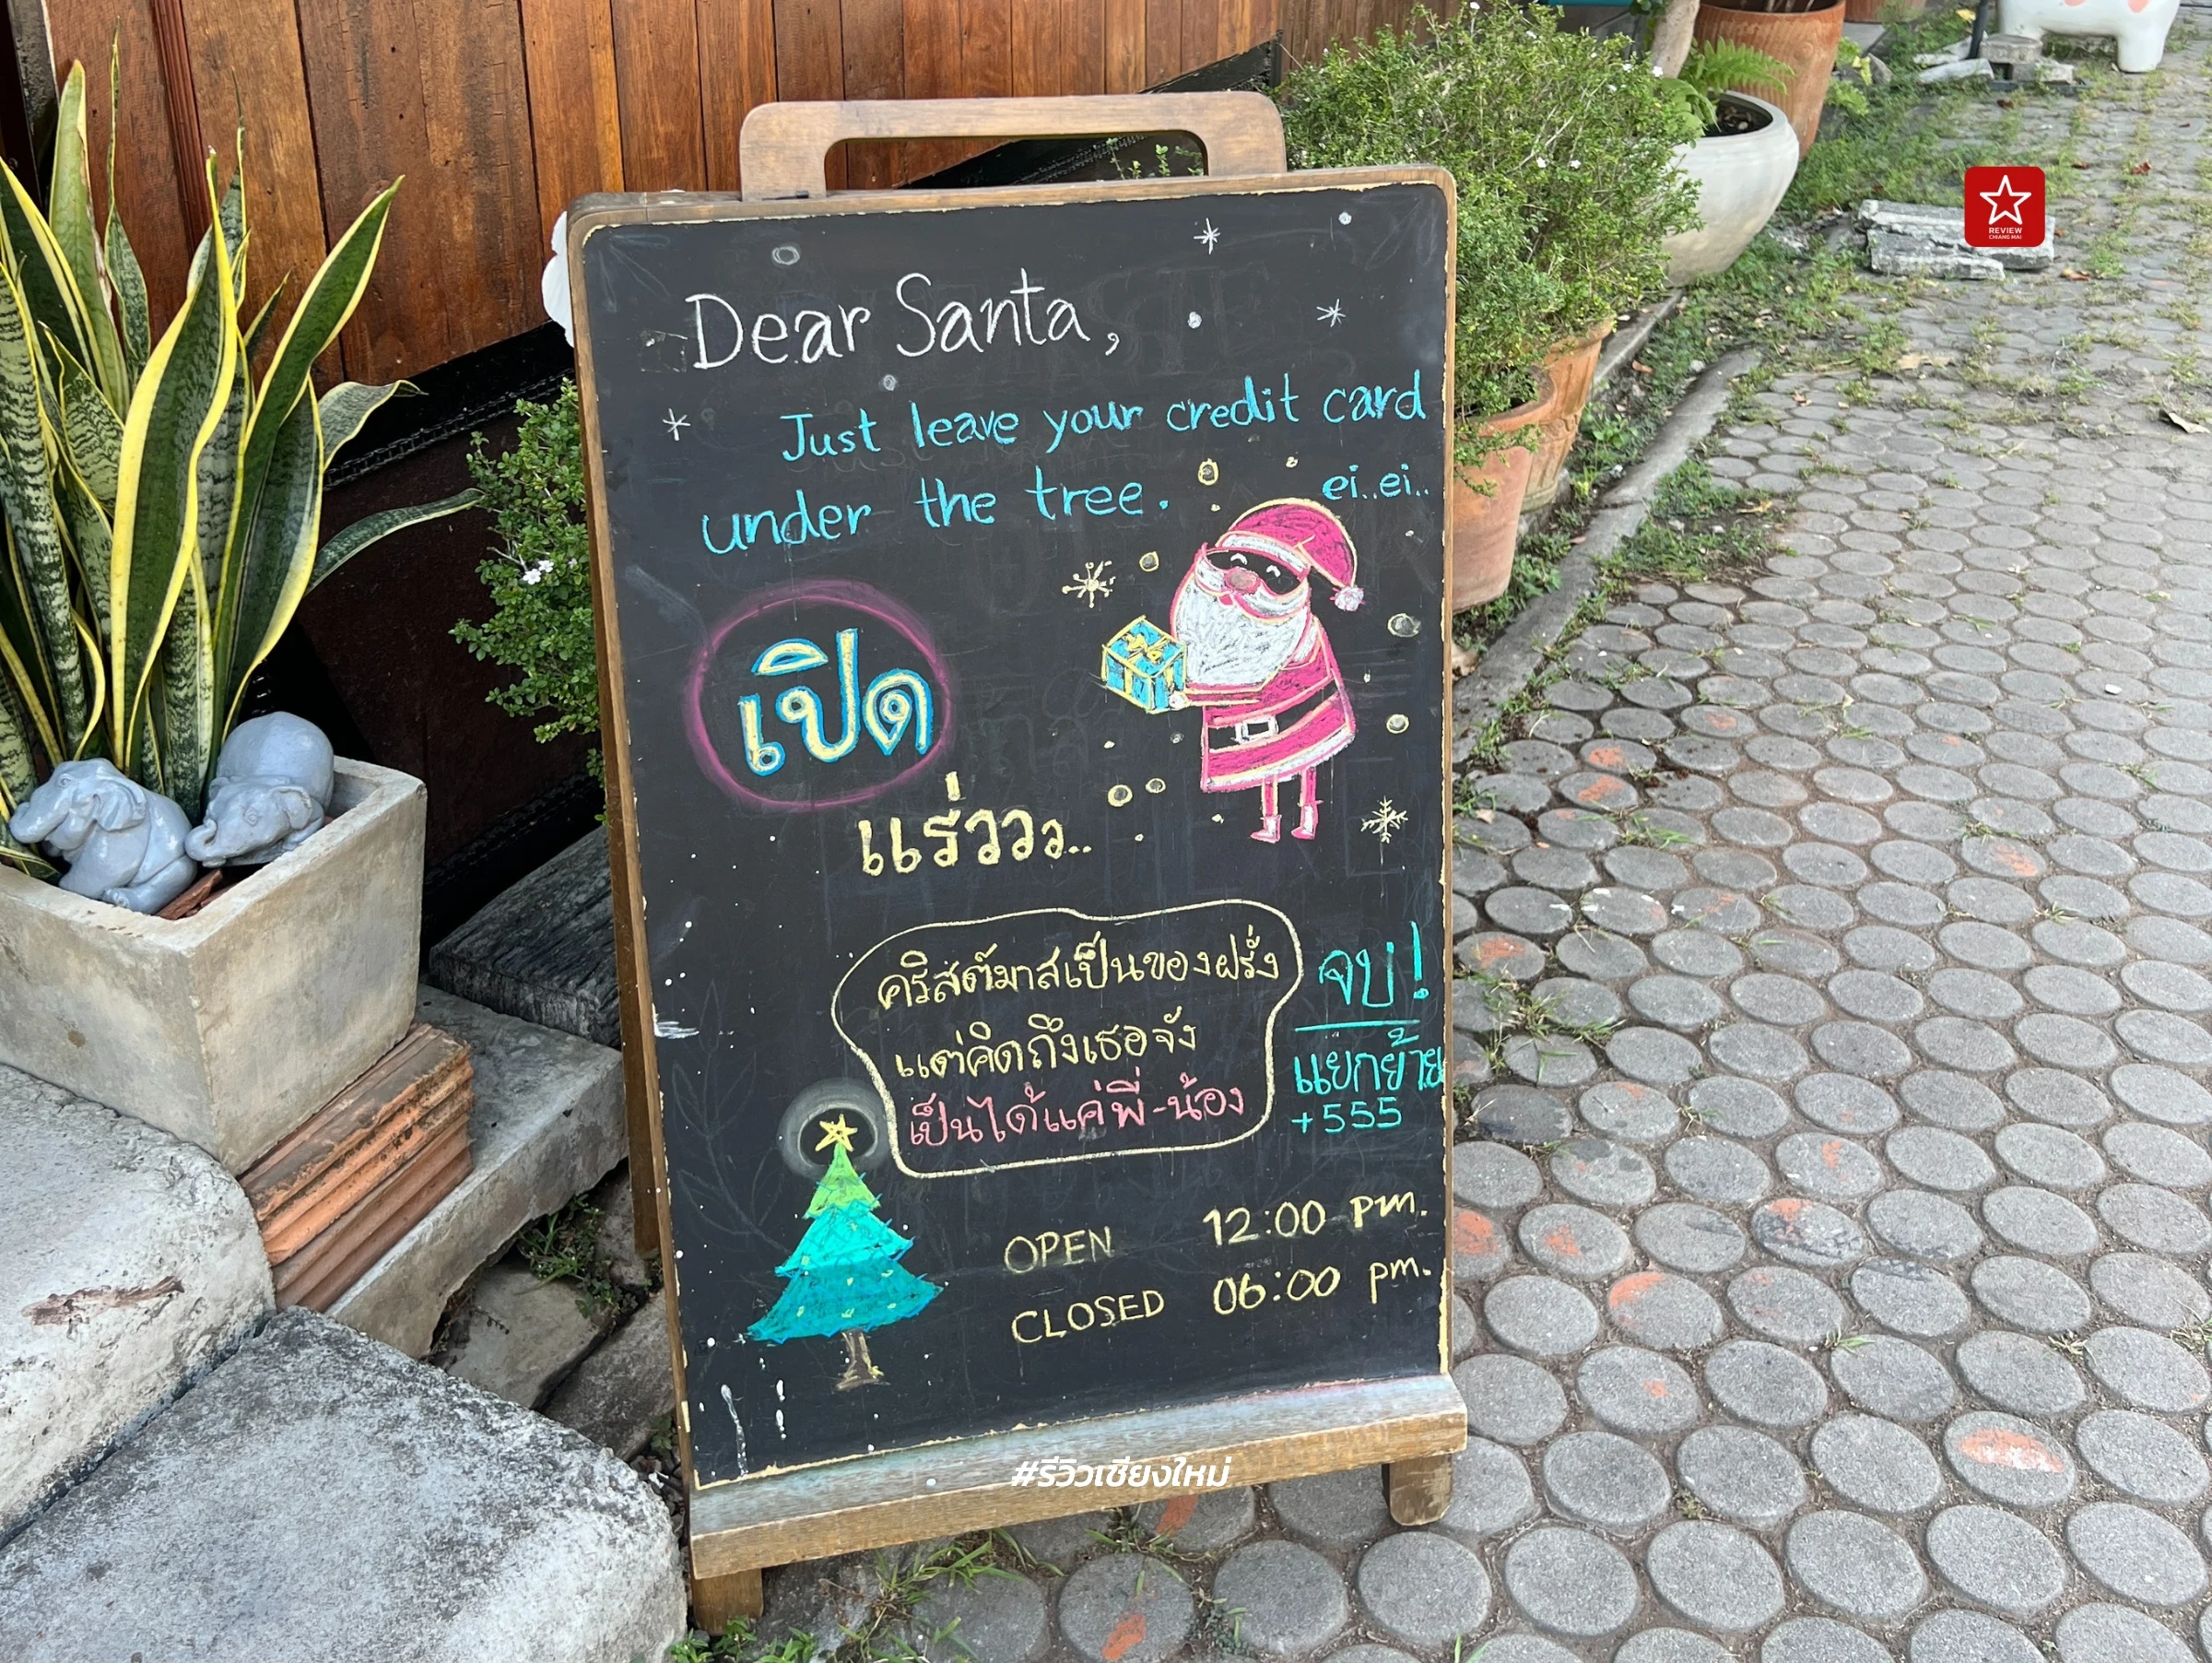 Dear Santa,
Just leave your credit card
under the tree. ei..ei..
เปิด
แร่ววว..
คริสต์มาสเป็นของฝรั่ง
แต่คิดถึงเธอจัง
เป็นได้แค่พี่-น้อง
จบ!
แยกย้าย
+555
OPEN 12:00 pm.
CLOSED 06:00 pm.
#รีวิวเชียงใหม่
REVIEW
CHIANG MAI